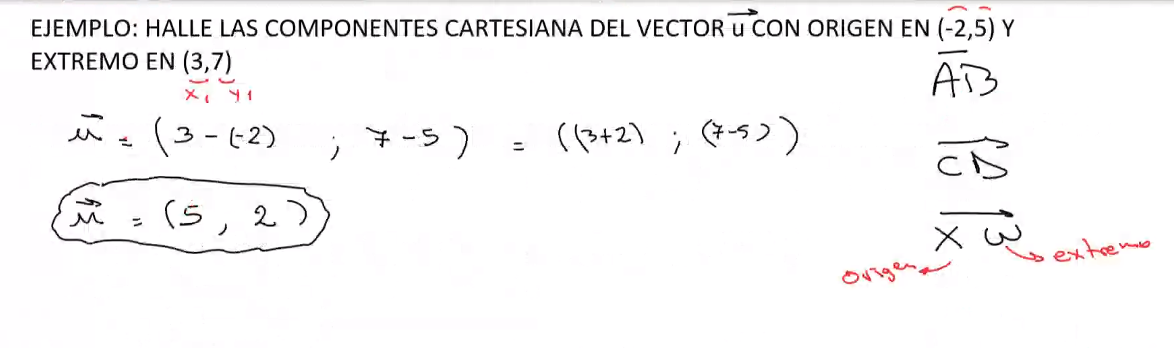 EJEMPLO: HALLE LAS COMPONENTES CARTESIANA DEL VECTOR u⃗ CON ORIGEN EN (-2,5) Y
EXTREMO EN (3,7)
x₁ y₁
u⃗ = (3-(-2) ; 7-5) = ((3+2) ; (7-5))
u⃗ = (5, 2)
A͞B͞
CD⃗
XW⃗
origen
extremo